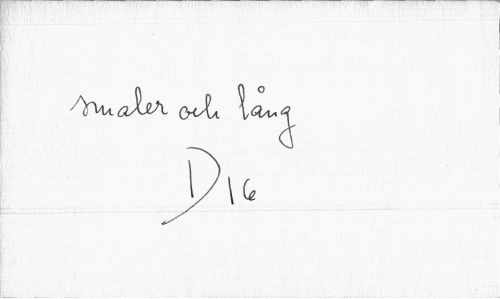 smaler och lång
D16